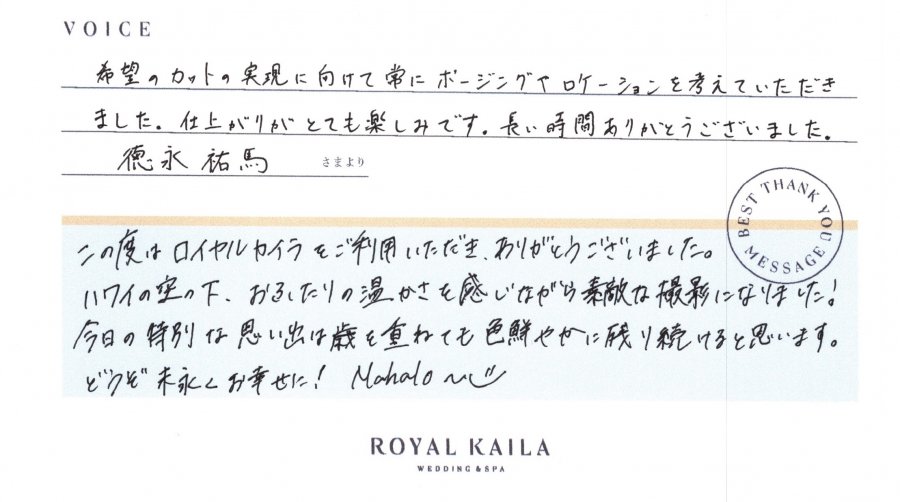 VOICE
希望のカットの実現に向けて常にポージングやロケーションを考えていただき
ました。仕上がりがとても楽しみです。長い時間ありがとうございました。
徳永祐馬 さまより
BEST THANK YOU MESSAGE
この度はロイヤルカイラをご利用いただき、ありがとうございました。
ハワイの空の下、おふたりの温かさを感じながら素敵な撮影になりました!
今日の特別な思い出は歳を重ねても色鮮やかに残り続けると思います。
どうぞ末永くお幸せに! Mahalo~
ROYAL KAILA
WEDDING & SPA